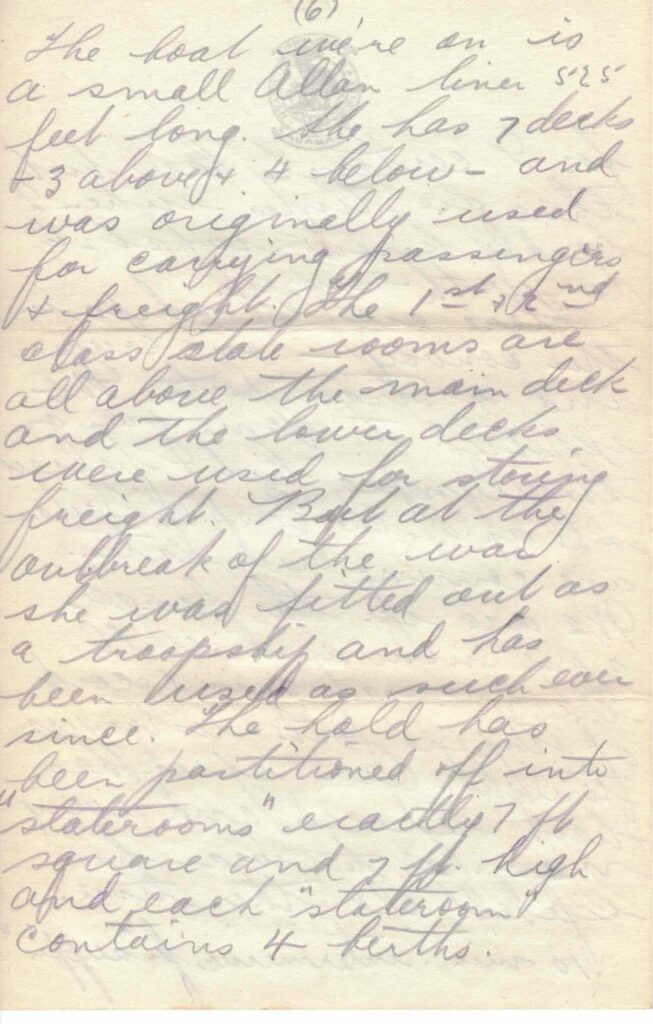 (6)
The boat we're on is
a small Allan liner 525
feet long. She has 7 decks
- 3 above & 4 below - and
was originally used
for carrying passengers
& freight. The 1st & 2nd
class state rooms are
all above the main deck
and the lower decks
were used for storing
freight. But at the
outbreak of the war
she was fitted out as
a troopship and has
been used as such ever
since. The hold has
been partitioned off into
"staterooms" exactly 7 ft
square and 7 ft. high
and each "stateroom"
contains 4 berths.